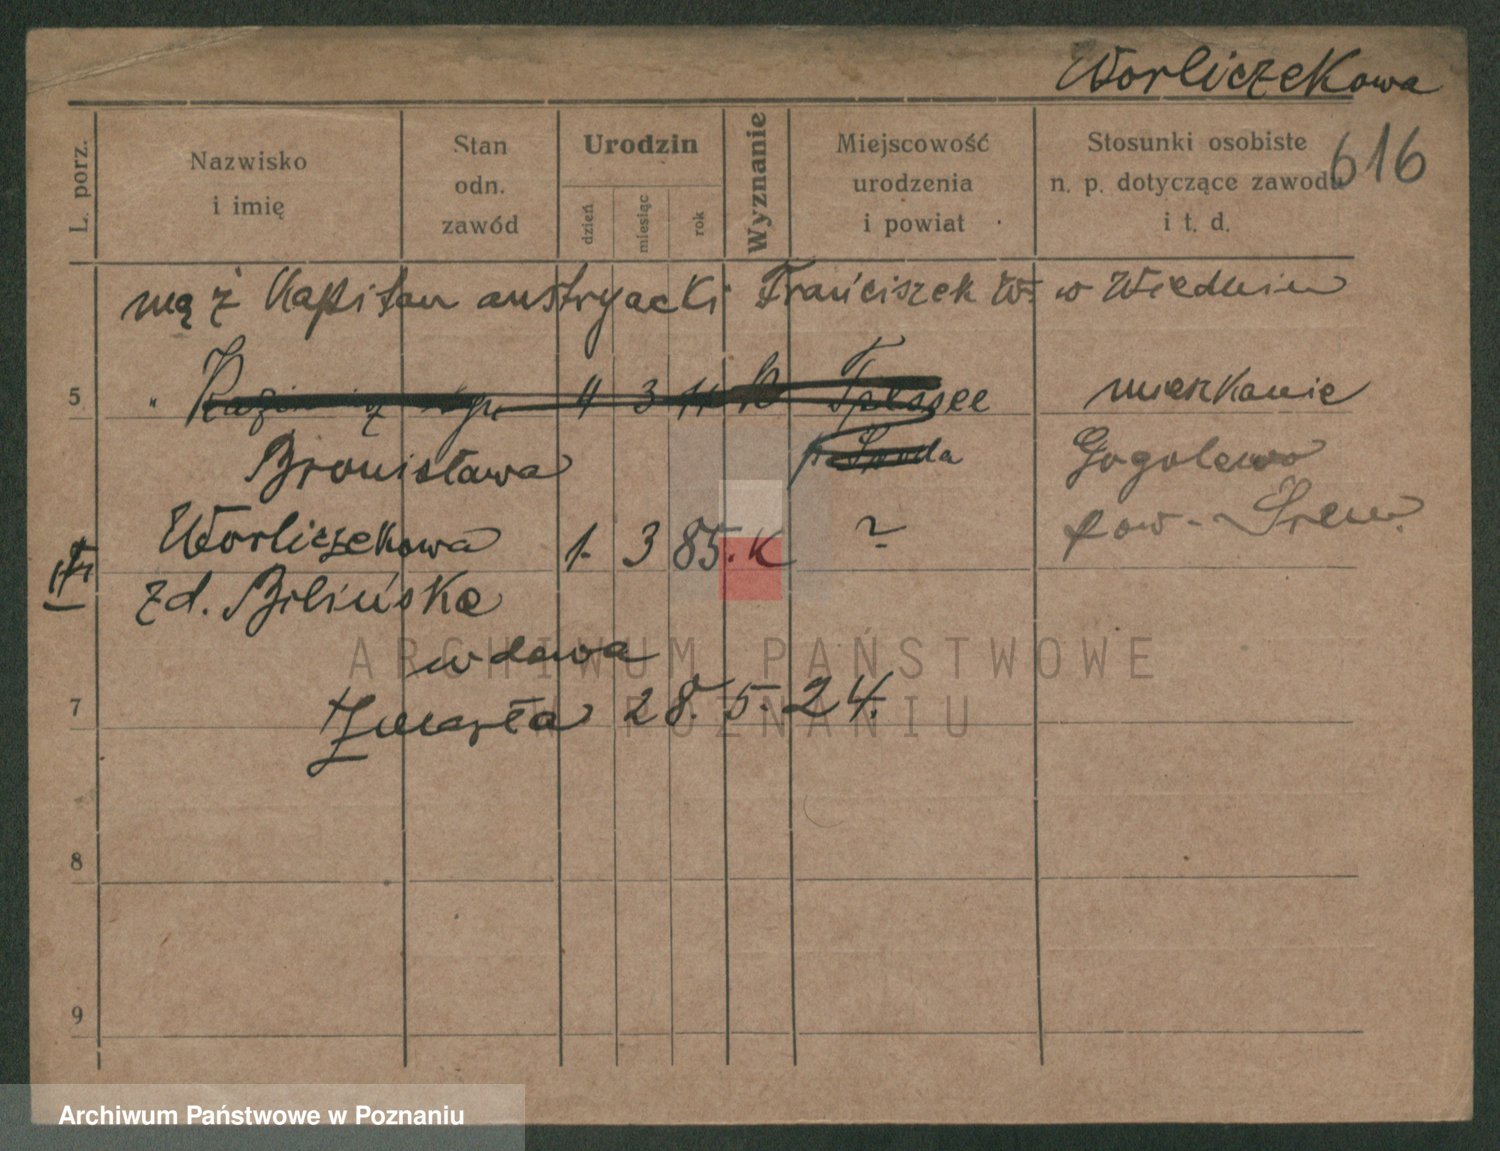 Worliczekowa
616
L. porz.
Nazwisko
i imię
Stan
odn.
zawód
Urodzin
dzień
miesiąc
rok
Wyznanie
Miejscowość
urodzenia
i powiat
Stosunki osobiste
n. p. dotyczące zawodu
i t. d.
mąż Kapitan austryacki Franciszek W. w Wiedniu
5 " 4 3 mieszkanie
Bronisława Środa Gogolewo
Worliczekowa 1. 3 85. K ? pow. Śrem.
zd. Bilińska
wdowa
7 zmarła 28. 5. 24.
8
9
ARCHIWUM PAŃSTWOWE
W POZNANIU
Archiwum Państwowe w Poznaniu